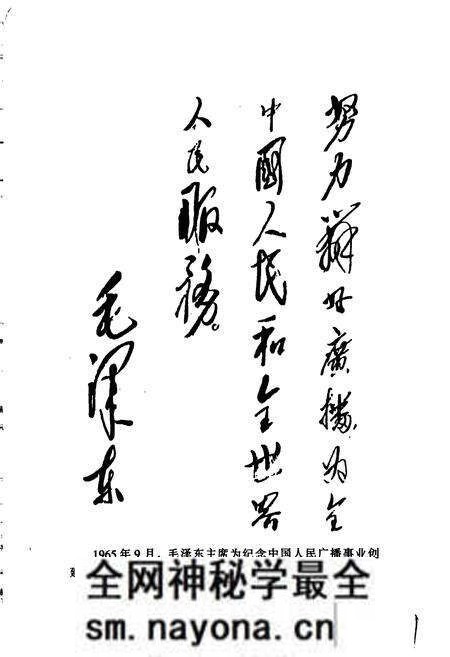 努力辦好廣播，為全
中國人民和全世界
人民服務。
毛泽东
1965年9月，毛泽东主席为纪念中国人民广播事业创
全网神秘学最全
sm.nayona.cn